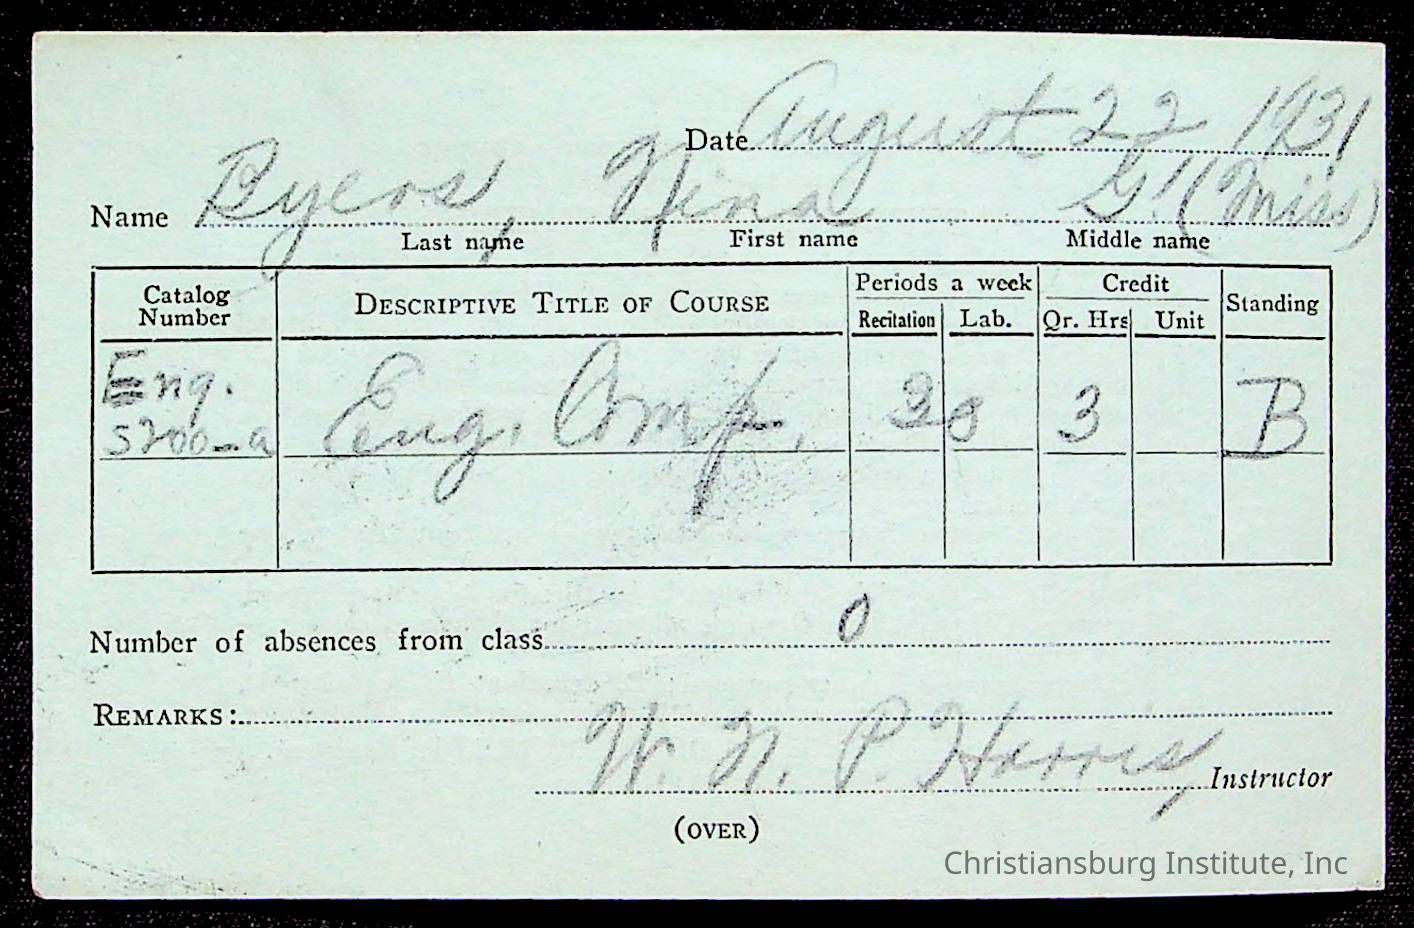 Date August 22 1931
Name Byers, Nina G. (Miss)
Last name First name Middle name
Catalog Number DESCRIPTIVE TITLE OF COURSE Periods a week Credit Standing
Recitation Lab. Qr. Hrs Unit
Eng. S200-a Eng. Comp. 3 3 B
Number of absences from class 0
REMARKS:
W. N. P. Harris, Instructor
(OVER)
Christiansburg Institute, Inc